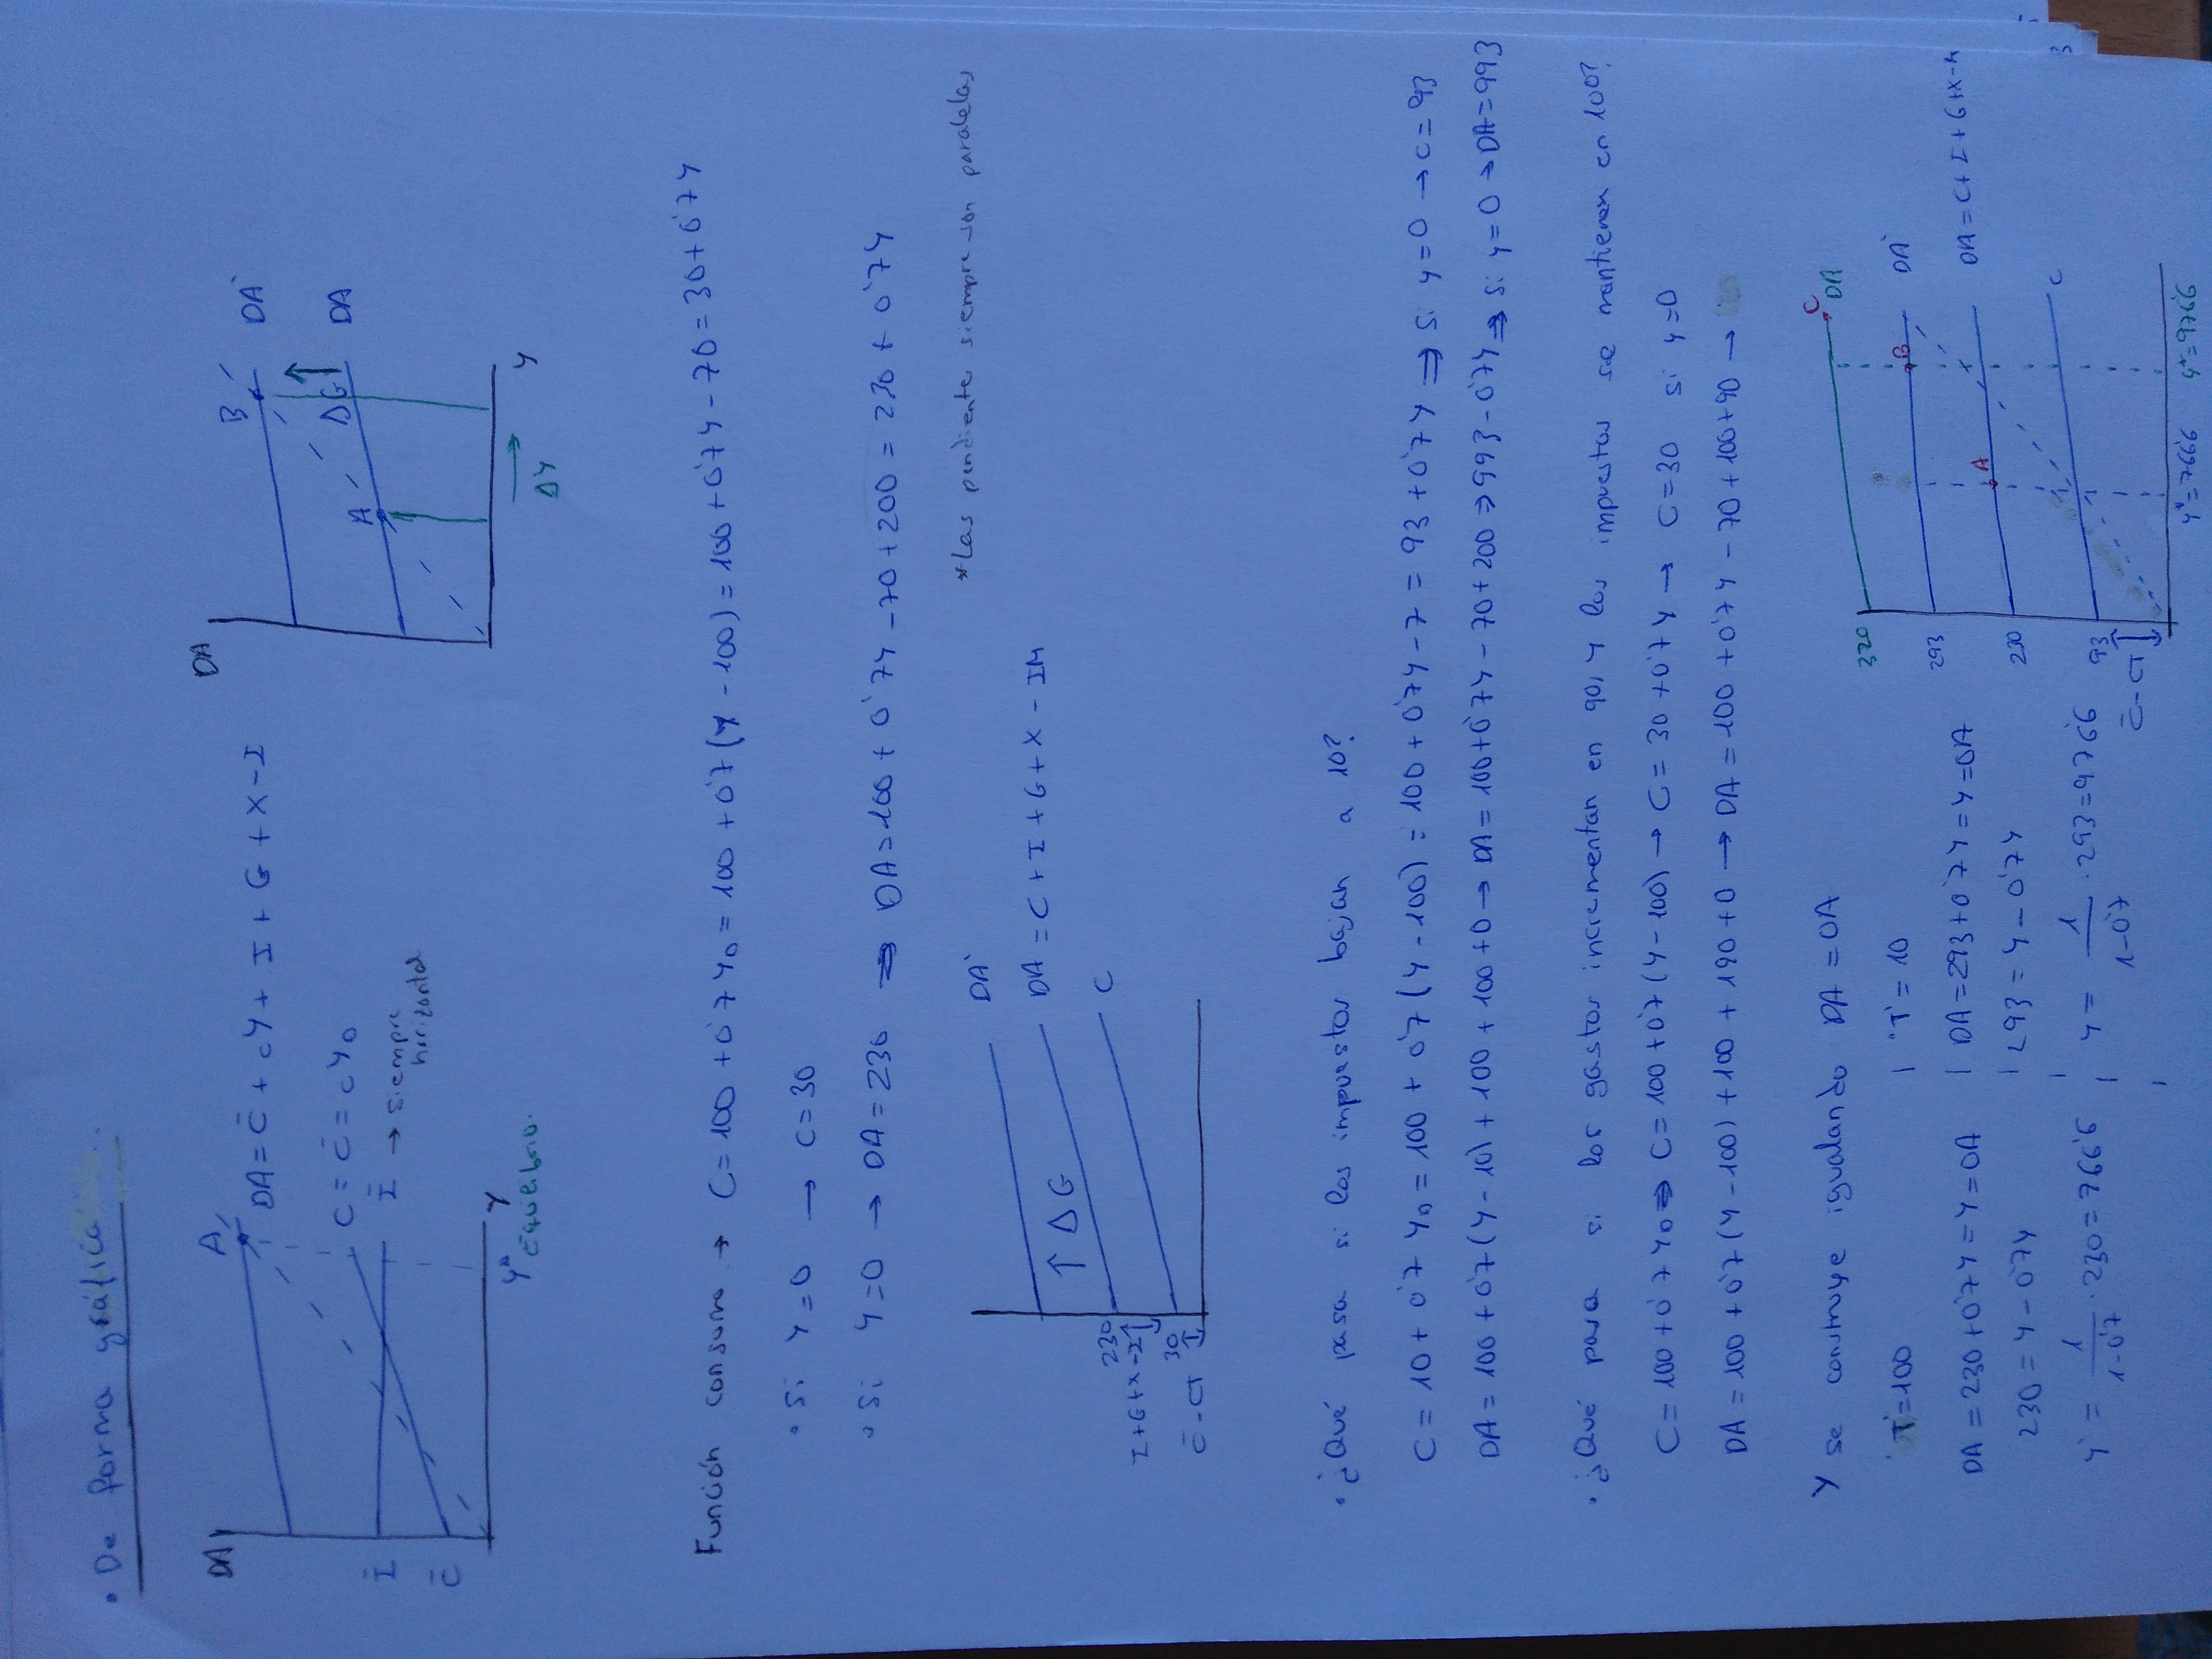 · De forma gráfica
DA
A
DA = C̄ + cY + I + G + X - I
C = C̄ = cY₀
Ī → siempre
horizontal
Ī
C̄
Y* Y
Equilibrio.
DA
B
DA'
ΔG
DA
A
Y
ΔY
Función consumo → C = 100 + 0'7 Y₀ = 100 + 0'7 (Y - 100) = 100 + 0'7Y - 70 = 30 + 0'7Y
· Si Y = 0 → C = 30
· Si Y = 0 → DA = 230 ⇒ DA = 100 + 0'7Y - 70 + 200 = 230 + 0'7Y
*Las pendiente siempre son paralelas
DA'
DA = C + I + G + X - IM
↑ ΔG
C
230
I+G+X-I
30
C̄ - CT
· ¿Qué pasa si los impuestos bajan a 10?
C = 10 + 0'7 Y₀ = 100 + 0'7 (Y - 100) = 100 + 0'7Y - 7 = 93 + 0'7Y ⇒ Si Y = 0 → C = 93
DA = 100 + 0'7 (Y - 10) + 100 + 100 + 0 → DA = 100 + 0'7Y - 70 + 200 ⇒ 993 - 0'7Y ⇒ Si Y = 0 ⇒ DA = 993
· ¿Qué pasa si los gastos incrementan en 90, y los impuestos se mantienen en 100?
C = 100 + 0'7 Y₀ ⇒ C = 100 + 0'7 (Y - 100) → C = 30 + 0'7Y → C = 30 si Y = 0
DA = 100 + 0'7 (Y - 100) + 100 + 190 + 0 → DA = 100 + 0'7Y - 70 + 100 + 90 →
Y se construye igualando DA = OA
T = 100 | 'T' = 10
DA = 230 + 0'7Y = Y = OA | DA = 293 + 0'7Y = Y = OA
230 = Y - 0'7Y | 293 = Y - 0'7Y
Y = 1/1-0'7 · 230 = 766'6 | Y = 1/1-0'7 · 293 = 976'6
320
293
230
93
C̄ - CT
C
DA
B
DA'
A
DA = C + I + G + X - M
C
Y* = 766'6 Y* = 976'6
3